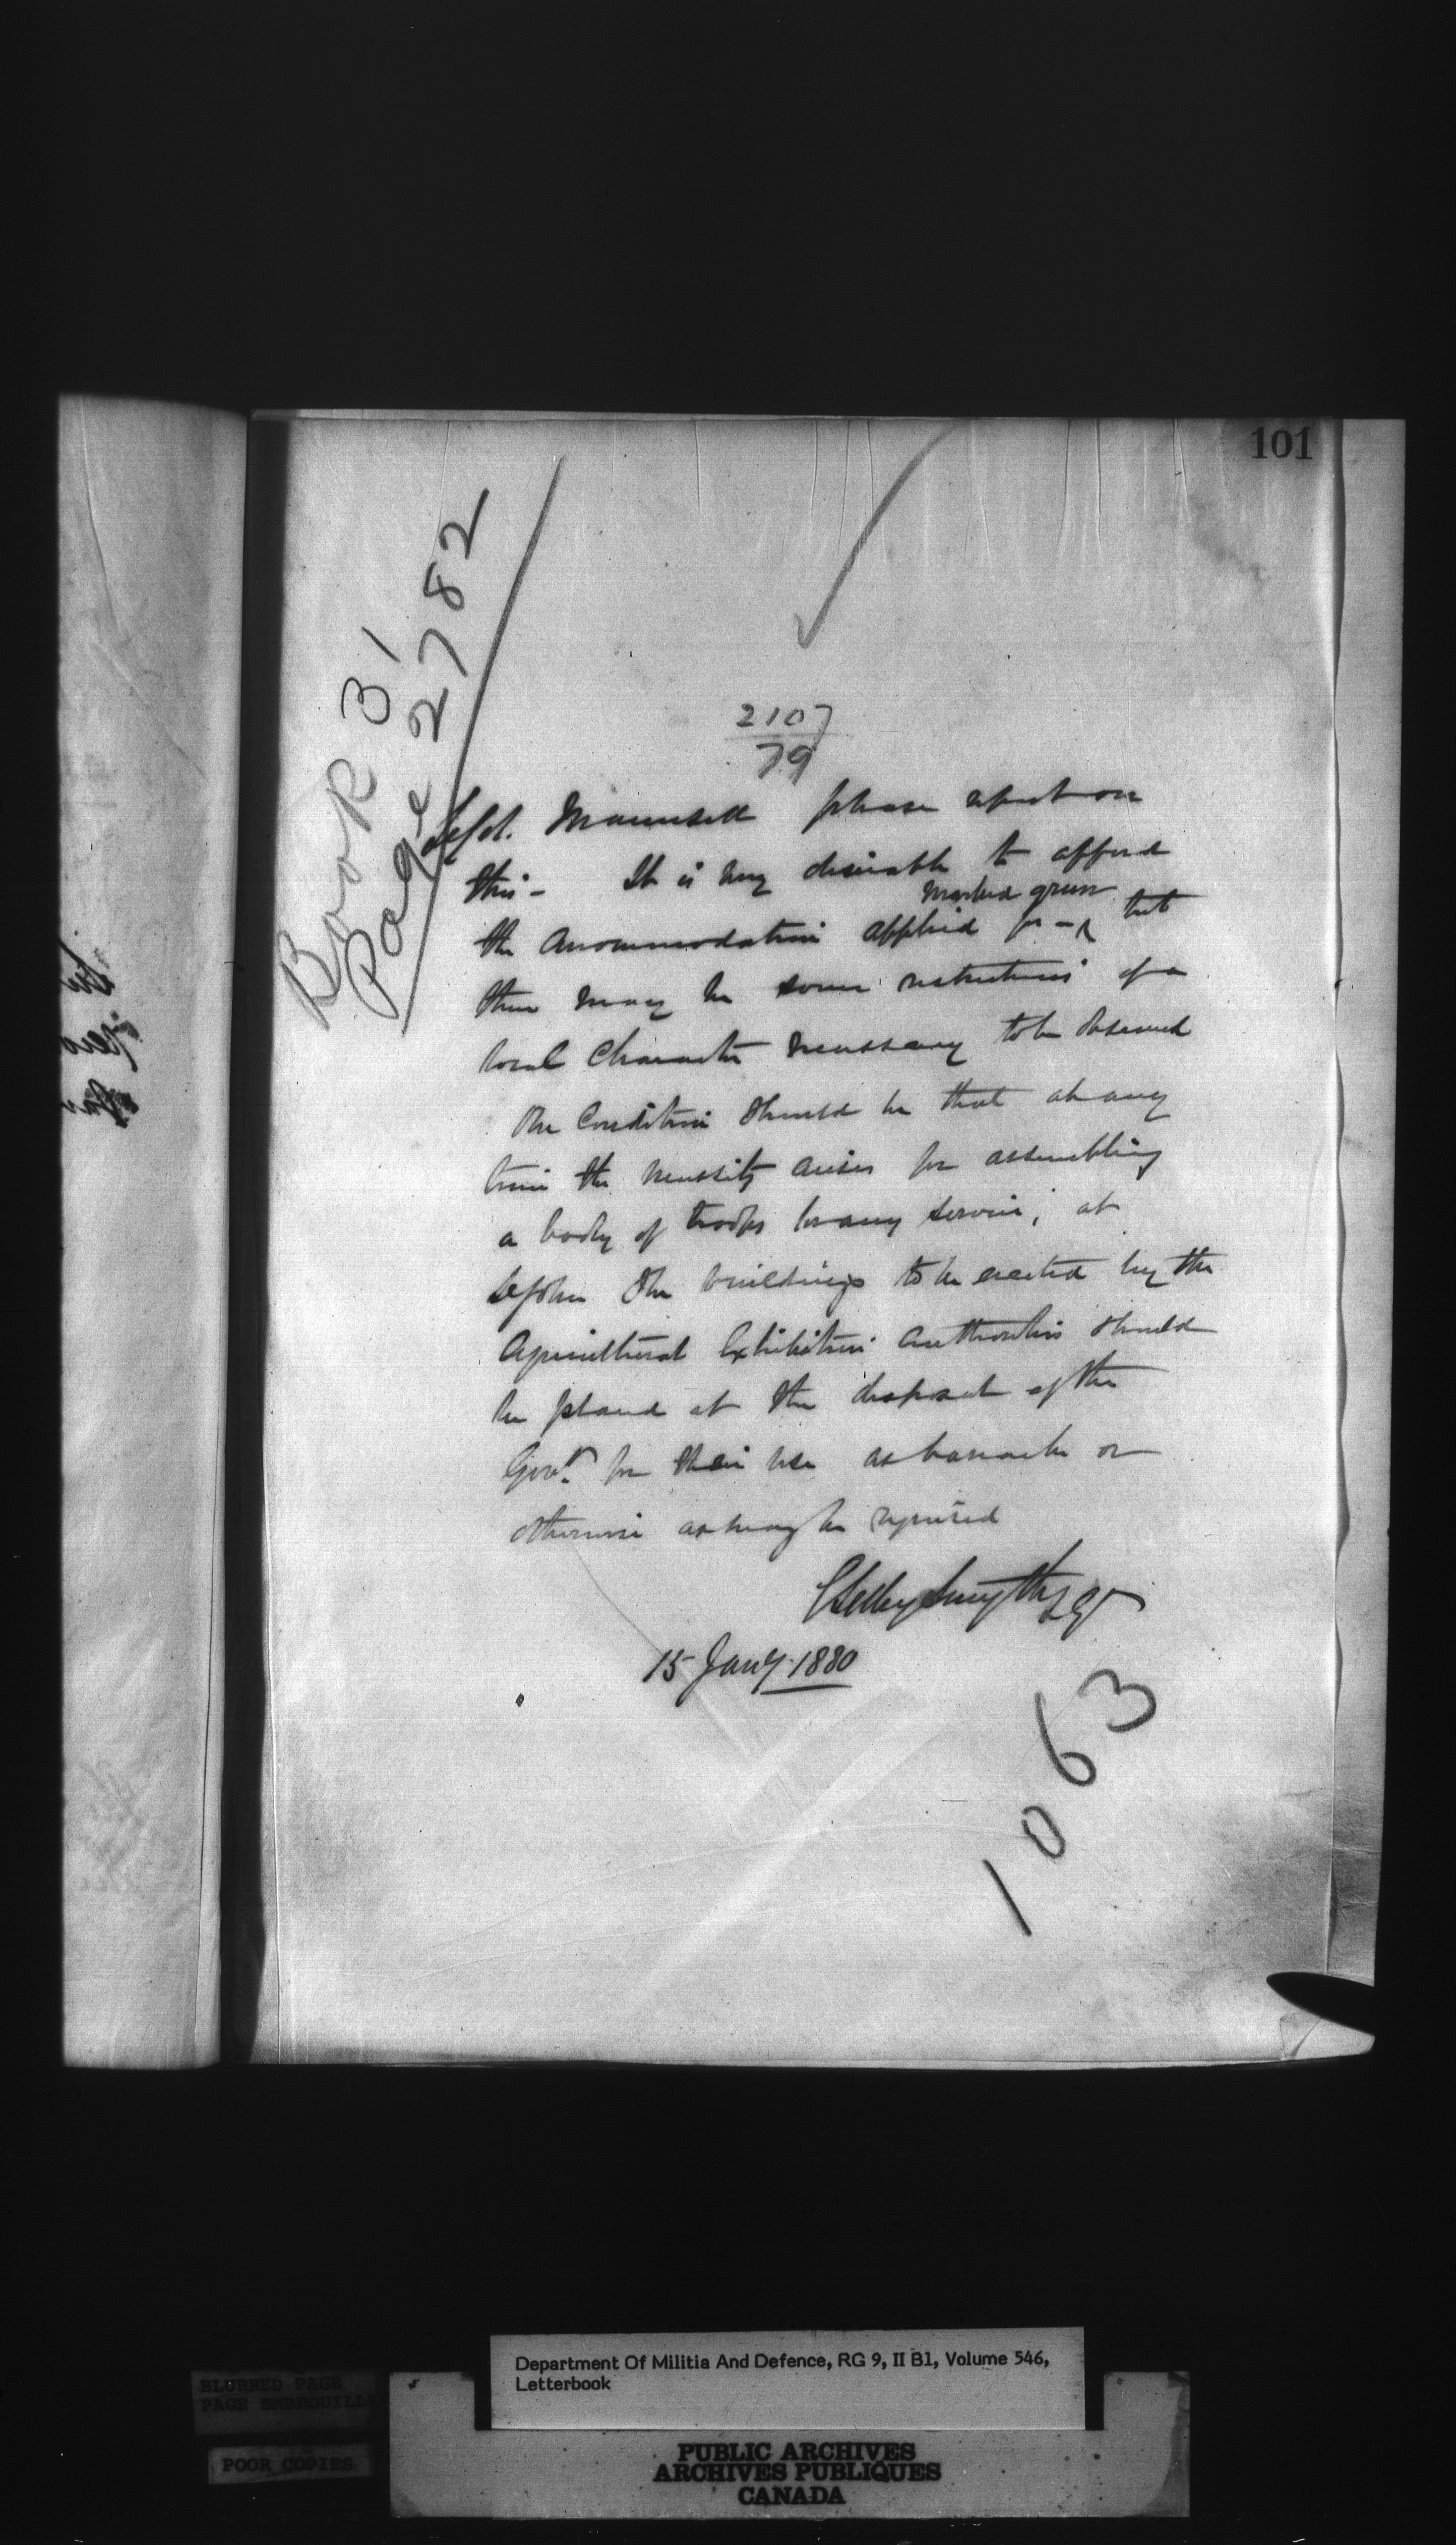 101
Book 31
Page 2782
2107
79
Lt Col. Maunsell please report on
this - It is very desirable to afford
marked green
the accommodation applied for - but
there may be some restrictions of a
local character necessary to be observed
One condition should be that at any
time the necessity arises for assembling
a body of troops for any service, at
St John the buildings to be erected by the
Agricultural Exhibition authorities should
be placed at the disposal of the
Govt. for their use as barracks or
otherwise as may be required
E Selby Smyth Lt Gl
15 Jany. 1880
1063
Department Of Militia And Defence, RG 9, II B1, Volume 546,
Letterbook
BLURRED PAGE
PAGE EMBROUILLE
POOR COPIES
PUBLIC ARCHIVES
ARCHIVES PUBLIQUES
CANADA